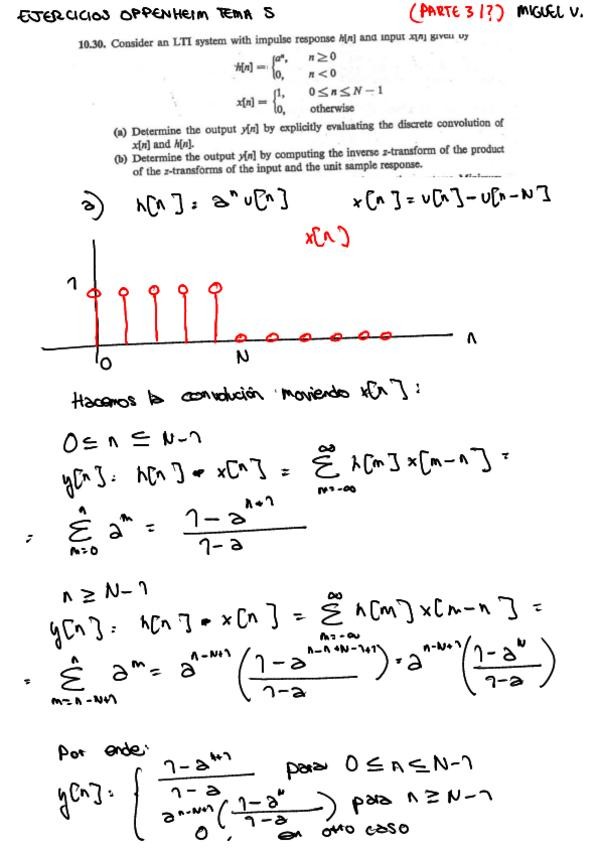 EJERCICIOS OPPENHEIM TEMA 5 (PARTE 3 1?) MIGUEL V.
10.30. Consider an LTI system with impulse response h[n] and input x[n] given by
h[n] = { aⁿ, n ≥ 0
0, n < 0
x[n] = { 1, 0 ≤ n ≤ N − 1
0, otherwise
(a) Determine the output y[n] by explicitly evaluating the discrete convolution of
x[n] and h[n].
(b) Determine the output y[n] by computing the inverse z-transform of the product
of the z-transforms of the input and the unit sample response.
a) h[n] = aⁿ u[n] x[n] = u[n] − u[n−N]
x[n]
1
n
0 N
Hacemos la convolución moviendo x[n]:
0 ≤ n ≤ N−1
y[n] = h[n] * x[n] = Σ_{m=-∞}^{∞} h[m] x[m−n] =
= Σ_{m=0}^{n} a^m = (1 − a^{n+1})/(1−a)
n ≥ N−1
y[n] = h[n] * x[n] = Σ_{m=-∞}^{∞} h[m] x[m−n] =
= Σ_{m=n−N+1}^{n} a^m = a^{n−N+1} ((1 − a^{n−n+N−1+1})/(1−a)) = a^{n−N+1} ((1−a^N)/(1−a))
Por ende:
y[n] = { (1−a^{n+1})/(1−a) para 0 ≤ n ≤ N−1
a^{n−N+1} ((1−a^N)/(1−a)) para n ≥ N−1
0, en otro caso